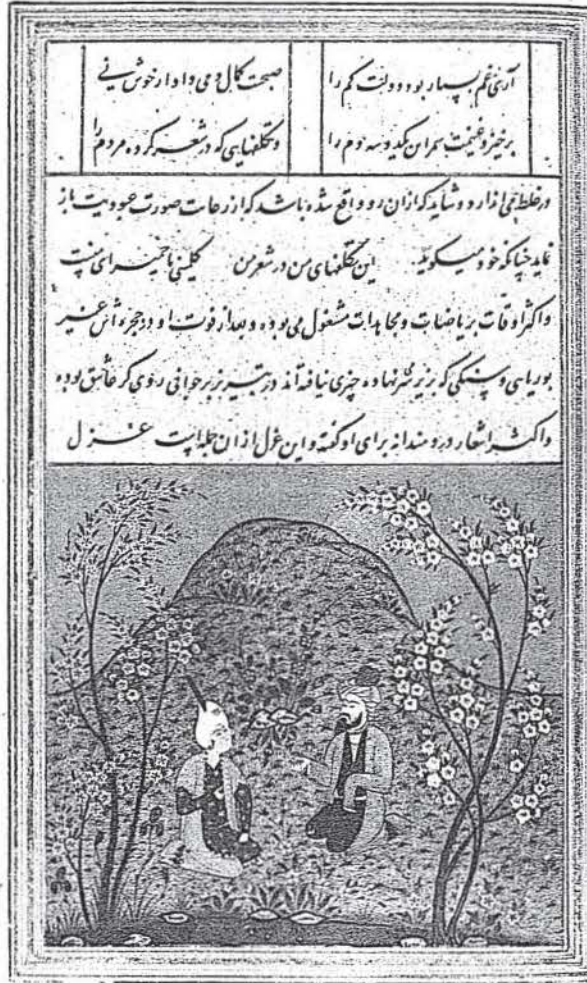 آری غم بسیار بود دولت کم را صحبت کمال دمی و ادار خوش
برخیز و غنیمت شمر این یکدوسه دم را و تکلفهایی که در شعر کرده مردم را
در غلط می‌اندازد و شاید که از آن رو واقع شده باشد که از رعایت صورت عبودیت باز
نماید چنانکه خود میگوید این تکلفهای من در شعر من کلمینی یا حمیرای منست
و اکثر اوقات بریاضات و مجاهدات مشغول می بوده و بعد از فوت او در حجره اش غیر
بوریای و سنگی که بزیر سر نهاده چیزی نیافته اند در تبریز بر جوانی عاشق بوده
و اکثر اشعار دردمندانه برای او گفته و این غزل از آن جمله است غزل